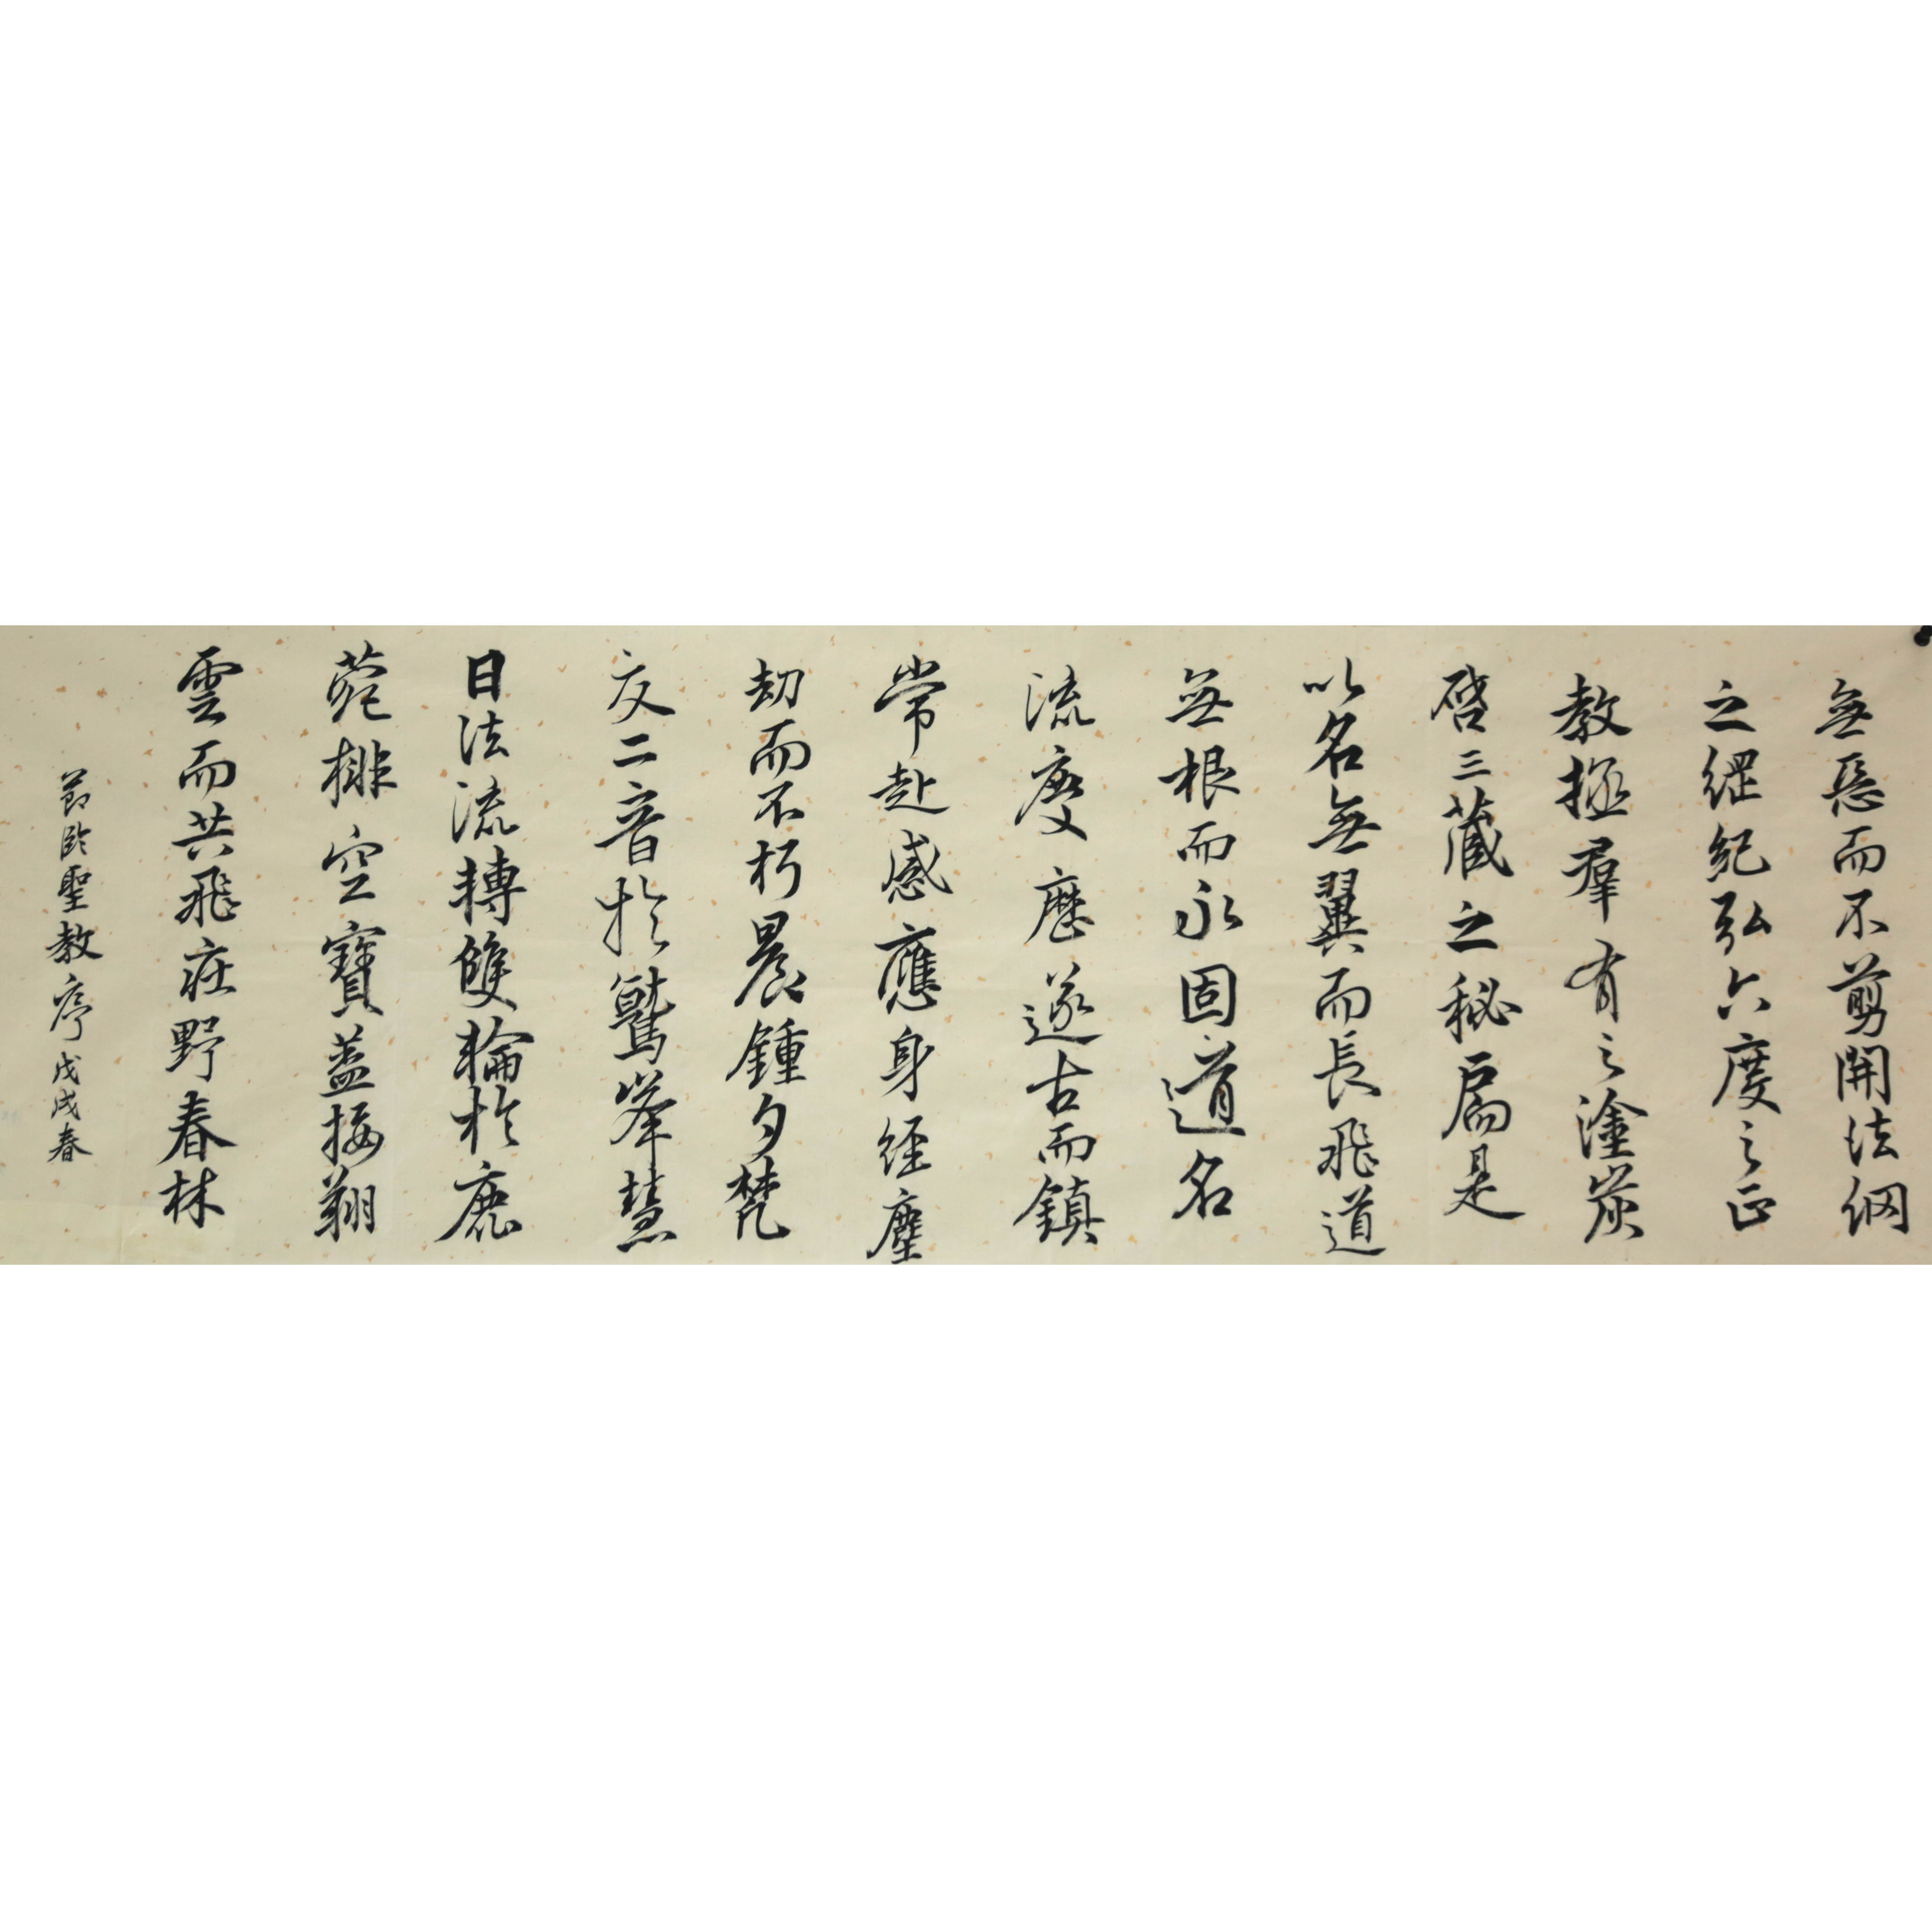 無惡而不剪開法網
之綱紀弘六度之正
教拯羣有之塗炭
啓三藏之秘扃是
以名無翼而長飛道
無根而永固道名
流慶歷遂古而鎮
常赴感應身經塵
劫而不朽晨鍾夕梵
交二音於鷲峯慧
日法流轉雙輪於鹿
菀排空寶蓋接翔
雲而共飛莊野春林
節臨聖教序戊戌春